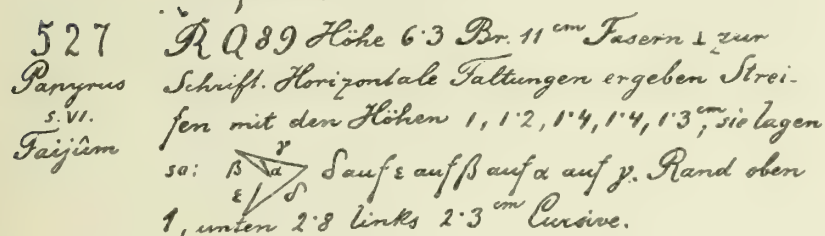 527 R Q 89 Höhe 6·3 Br. 11 cm Fasern ⊥ zur
Papyrus Schrift. Horizontale Faltungen ergeben Strei-
s. VI. fen mit den Höhen 1, 1·2, 1·4, 1·4, 1·3 cm, sie lagen
Faijûm so: β γ α ε δ δ auf ε auf β auf α auf γ. Rand oben
1, unten 2·8 links 2·3 cm Cursive.